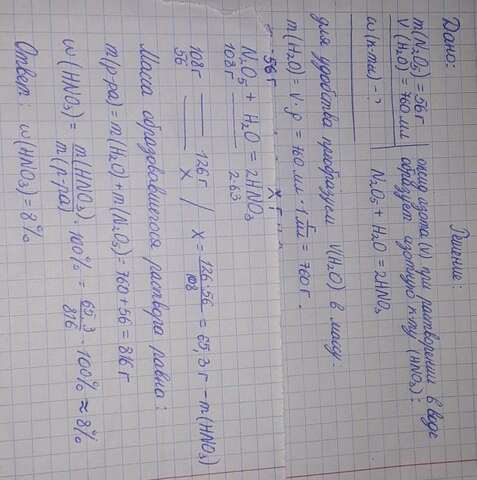 Дано:
m(N₂O₅) = 56 г
V(H₂O) = 760 мл
w(к-ты) - ?
Решение:
оксид азота (V) при растворении в воде
образует азотную к-ту (HNO₃):
N₂O₅ + H₂O = 2HNO₃
для удобства преобразуем V(H₂O) в массу:
m(H₂O) = V · ρ = 760 мл · 1 г/мл = 760 г.
56 г x г
N₂O₅ + H₂O = 2HNO₃
108 г 2·63
108 г — 126 г
56 — x / x = 126·56/108 = 65,3 г - m(HNO₃)
Масса образовавшегося раствора равна:
m(р-ра) = m(H₂O) + m(N₂O₅) = 760 + 56 = 816 г
w(HNO₃) = m(HNO₃)/m(р-ра) · 100% = 65,3/816 · 100% ≈ 8%
Ответ: w(HNO₃) = 8%